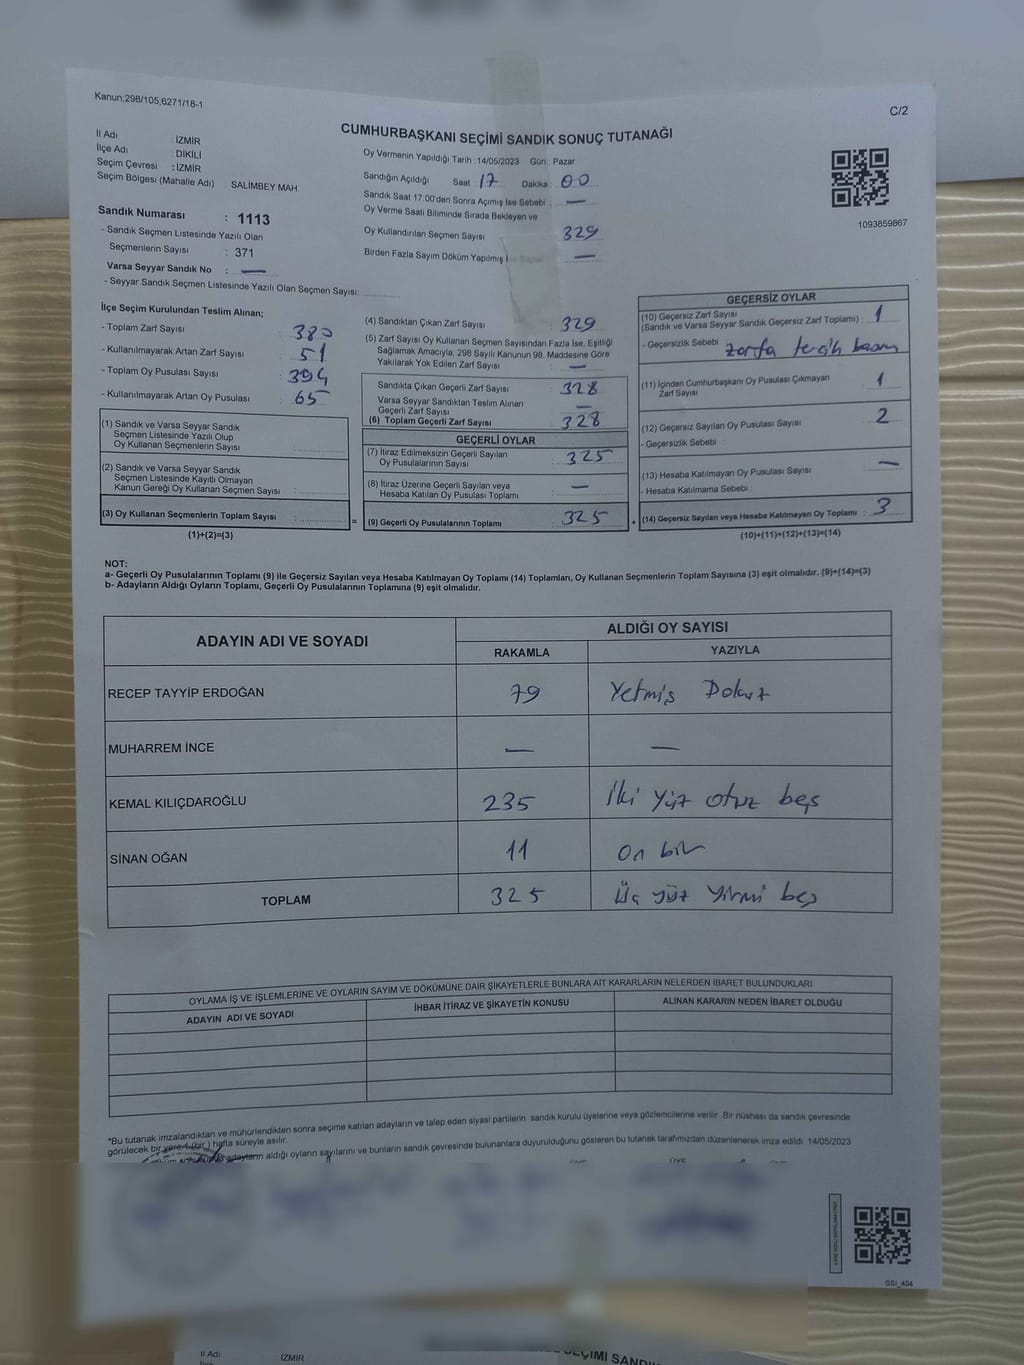 Kanun;298/105,6271/18-1
C/2
CUMHURBAŞKANI SEÇİMİ SANDIK SONUÇ TUTANAĞI
İl Adı : İZMİR
İlçe Adı : DİKİLİ
Seçim Çevresi : İZMİR
Seçim Bölgesi (Mahalle Adı) : SALİMBEY MAH.
Oy Vermenin Yapıldığı Tarih :14/05/2023 Gün : Pazar
Sandığın Açıldığı Saat : 17 Dakika : 00
Sandık Saat 17:00'den Sonra Açımış İse Sebebi : —
Oy Verme Saati Bitiminde Sırada Bekleyen ve
Oy Kullandırılan Seçmen Sayısı 329
Birden Fazla Sayım Döküm Yapılmış —
1093859867
Sandık Numarası : 1113
- Sandık Seçmen Listesinde Yazılı Olan
Seçmenlerin Sayısı : 371
Varsa Seyyar Sandık No : —
- Seyyar Sandık Seçmen Listesinde Yazılı Olan Seçmen Sayısı:
İlçe Seçim Kurulundan Teslim Alınan;
- Toplam Zarf Sayısı : 380
- Kullanılmayarak Artan Zarf Sayısı : 51
- Toplam Oy Pusulası Sayısı : 394
- Kullanılmayarak Artan Oy Pusulası : 65
(1) Sandık ve Varsa Seyyar Sandık
Seçmen Listesinde Yazılı Olup
Oy Kullanan Seçmenlerin Sayısı :
(2) Sandık ve Varsa Seyyar Sandık
Seçmen Listesinde Kayıtlı Olmayan
Kanun Gereği Oy Kullanan Seçmen Sayısı :
(3) Oy Kullanan Seçmenlerin Toplam Sayısı :
(1)+(2)=(3)
(4) Sandıktan Çıkan Zarf Sayısı : 329
(5) Zarf Sayısı Oy Kullanan Seçmen Sayısından Fazla İse, Eşitliği
Sağlamak Amacıyla, 298 Sayılı Kanunun 98. Maddesine Göre
Yakılarak Yok Edilen Zarf Sayısı : —
Sandıkta Çıkan Geçerli Zarf Sayısı : 328
Varsa Seyyar Sandıktan Teslim Alınan
Geçerli Zarf Sayısı : —
(6) Toplam Geçerli Zarf Sayısı : 328
GEÇERLİ OYLAR
(7) İtiraz Edilmeksizin Geçerli Sayılan
Oy Pusulalarının Sayısı : 325
(8) İtiraz Üzerine Geçerli Sayılan veya
Hesaba Katılan Oy Pusulası Toplamı : —
= (9) Geçerli Oy Pusulalarının Toplamı : 325 +
GEÇERSİZ OYLAR
(10) Geçersiz Zarf Sayısı
(Sandık ve Varsa Seyyar Sandık Geçersiz Zarf Toplamı) : 1
- Geçersizlik Sebebi : zarfa tercih basım
(11) İçinden Cumhurbaşkanı Oy Pusulası Çıkmayan
Zarf Sayısı : 1
(12) Geçersiz Sayılan Oy Pusulası Sayısı : 2
- Geçersizlik Sebebi :
(13) Hesaba Katılmayan Oy Pusulası Sayısı : —
- Hesaba Katılmama Sebebi :
(14) Geçersiz Sayılan veya Hesaba Katılmayan Oy Toplamı : 3
(10)+(11)+(12)+(13)=(14)
NOT:
a- Geçerli Oy Pusulalarının Toplamı (9) ile Geçersiz Sayılan veya Hesaba Katılmayan Oy Toplamı (14) Toplamları, Oy Kullanan Seçmenlerin Toplam Sayısına (3) eşit olmalıdır. (9)+(14)=(3)
b- Adayların Aldığı Oyların Toplamı, Geçerli Oy Pusulalarının Toplamına (9) eşit olmalıdır.
ADAYIN ADI VE SOYADI ALDIĞI OY SAYISI
RAKAMLA YAZIYLA
RECEP TAYYİP ERDOĞAN 79 Yetmiş Dokuz
MUHARREM İNCE — —
KEMAL KILIÇDAROĞLU 235 İki Yüz otuz beş
SİNAN OĞAN 11 On bir
TOPLAM 325 Üç yüz yirmi beş
OYLAMA İŞ VE İŞLEMLERİNE VE OYLARIN SAYIM VE DÖKÜMÜNE DAİR ŞİKAYETLERLE BUNLARA AİT KARARLARIN NELERDEN İBARET BULUNDUKLARI
ADAYIN ADI VE SOYADI İHBAR İTİRAZ VE ŞİKAYETİN KONUSU ALINAN KARARIN NEDEN İBARET OLDUĞU
*Bu tutanak imzalandıktan ve mühürlendikten sonra seçime katılan adayların ve talep eden siyasi partilerin sandık kurulu üyelerine veya gözlemcilerine verilir .Bir nüshası da sandık çevresinde
görülecek bir yere 1 (bir ) hafta süreyle asılır.
adayların aldığı oyların sayılarını ve bunların sandık çevresinde bulunanlara duyurulduğunu gösteren bu tutanak tarafımızdan düzenlenerek imza edildi 14/05/2023
SSİ_404
İl Adı İZMİR
SEÇİMİ